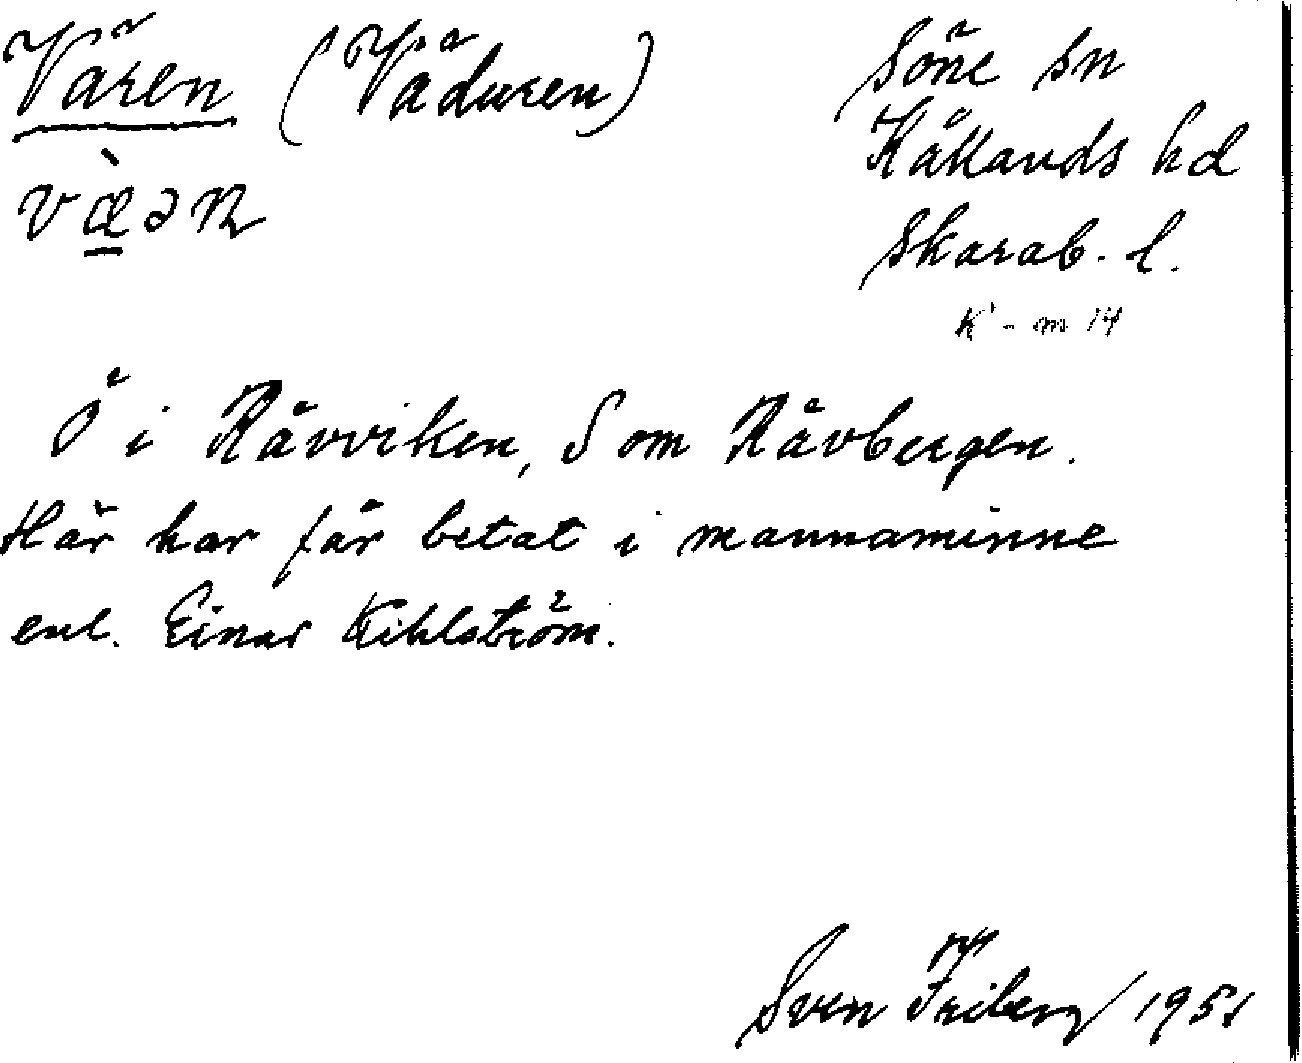 Vären (Väduren)
Söne sn
Kållands hd
Skarab. l.
væ̀ən
K' - m 14
Ö i Rävviken, S om Rävbergen.
Här har får betat i mannaminne
enl. Einar Kihlström.
Sven Friberg 1951